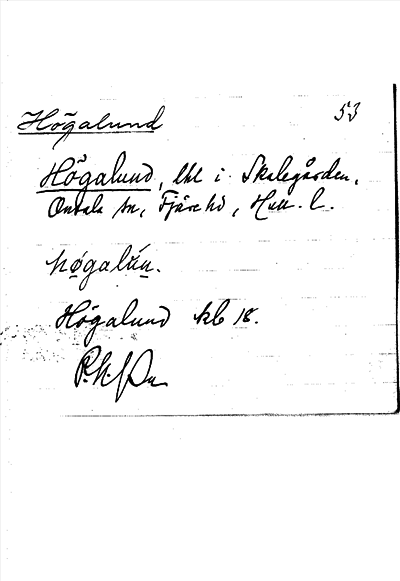 Högalund 53
Högalund, lht i Skalegården,
Onsala sn, Fjäre hd, Hall. l.
høgalún.
Högalund kb 18.